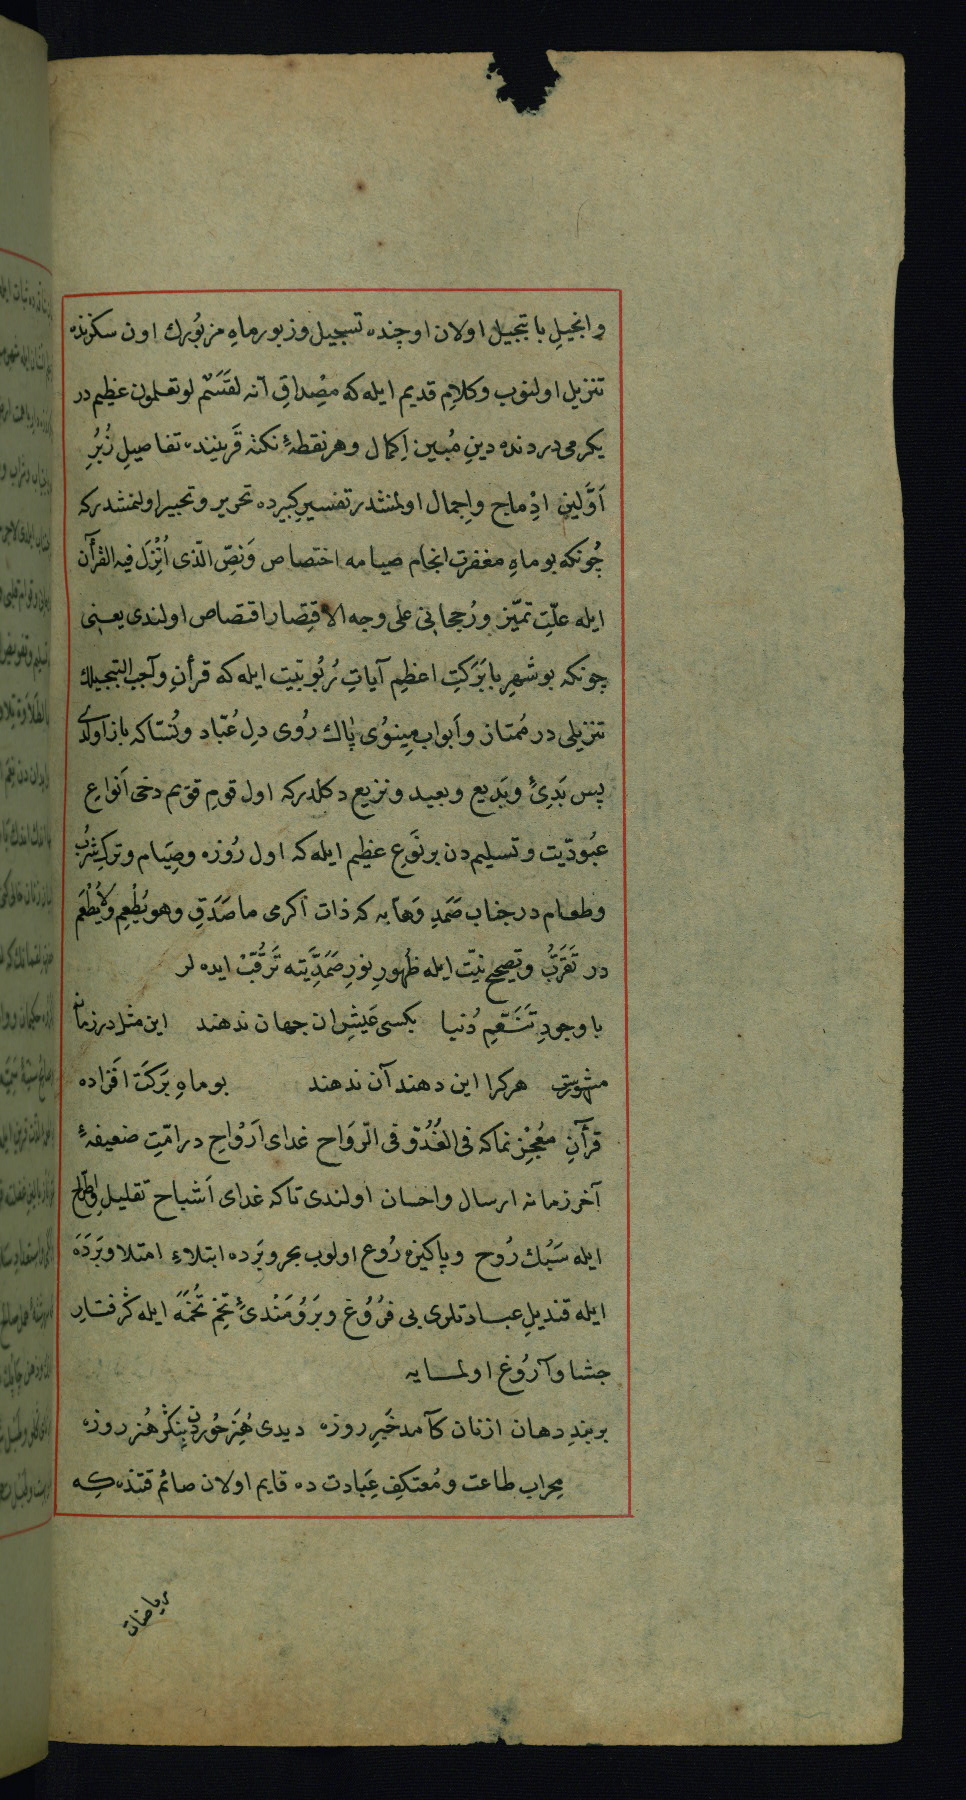 و انجیلِ با تبجیل اولان اوچنده تسجیل و زبور ماهِ مزبُورك اون سکزنده
تنزیل اولنوب و کلامِ قدیم ایله که مِصْداقِ انه لقَسَمٌ لو تعلمون عظیم در
یکرمی دردنده دینِ مُبین اِکمال و هر نقطهٔ نکته قَرینیند تفاصیلِ زُبُرِ
اَوَّلین اِدْماج و اِجمال اولمنشدر تفسیرِ کبیرده تحریر و تحبیر اولنمشدرکه
چُونکه بو ماهِ مغفرت انجام صیامه اختصاص وَنصِّ الّذی اُنْزِلَ فیه القرآن
ایله علّتِ تمیّز و رُجحانی علی وجه الاقتِصار اقتصاص اولندی یعنی
چونکه بو شهرِ با بَرَکتِ اعظمِ آیاتِ رُبُوبیّت ایله که قرأنِ واجب التبجیلك
تنزیلی در مُمتاز و اَبوابِ مِینوُی پاك رُوی دلِ عُبّاد و نُسّاکه باز اولدی
پس بَدِیٔ و بَدیع و بعید و نزیع دکلدرکه اول قومِ قویم دخی اَنواعِ
عبُودیّت و تسلیمدن بر نَوعِ عظیم ایله که اول رُوزه و صِیَام و ترکِ شُربُ
و طعام در جنابِ صَمَدِ وَهّابه که ذات اکرمی ما صَدَقِ وهو یُطْعِم ولا یُطْعَم
در تَقَرُّب و تصحیح نیّت ایله ظُهورِ نورِ صَمَدِیَّتِه تَرَقُّبْ ایده لر
با وجودِ تَنَعّمِ دُنیا بکسی عَیشِ ان جهان ندهند این مثل در زمانه
مشهورست هرکرا این دهند آن ندهند بو ماهِ بَرَکَت افزاده
قرآنِ معْجِز نماکه فی الغُدُوّ و فی الرّوَاح غدای اَرْواحِ در امّتِ ضعیفهٔ
آخر زمانه ارسال و احسان اولندی تاکه غدای اَشباح تقلیل و اِطّراح
ایله سَبُك رُوح و پاکیزه رُوع اولوب بحر و بَرده ابتلاءِ امتلا و بَرَدَهَ
ایله قندیلِ عبادتلری بی فرُوُغ و بَرُومَنْدیِٔ تخِم تُخْمَهَ ایله کرفتارِ
جشا و آرُوغ اولمایه
بر بندِ دهان از نان کآمد خَبَرِ روزه دیدی هُنَرِ خُوردن بِنکَر هُنرِ روزه
محراب طاعت و مُعتکِفِ عِبادت ده قایم اولان صائم قتنده که
ریاضات